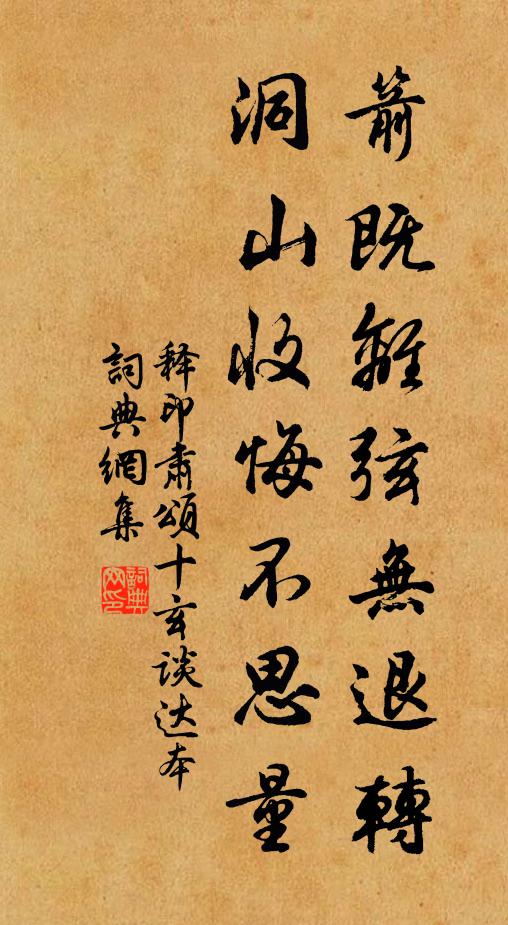 箭既離弦無退轉
洞山收悔不思量
释印肅頌十玄談达本
詞典網集
詞典網印